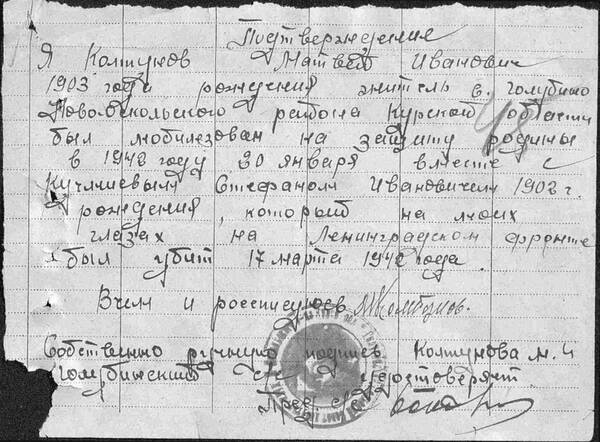 Подтверждения
Я Колтунов Матвей Иванович
1903 года рождения житель с. голубино
Новооскольского района Курской области
был мобилезован на защиту родины
в 1942 году 20 января вместе с
Стефаном Ивановичем 1902 г.
рождения, который на моих
глазах на Ленинградском фронте
был убит 17 марта 1942 года.
В чем и россписуюсь
Собственно ручную подпись Колтунова М. И
Голубинский с/с удостоверяет
Пред. с/с